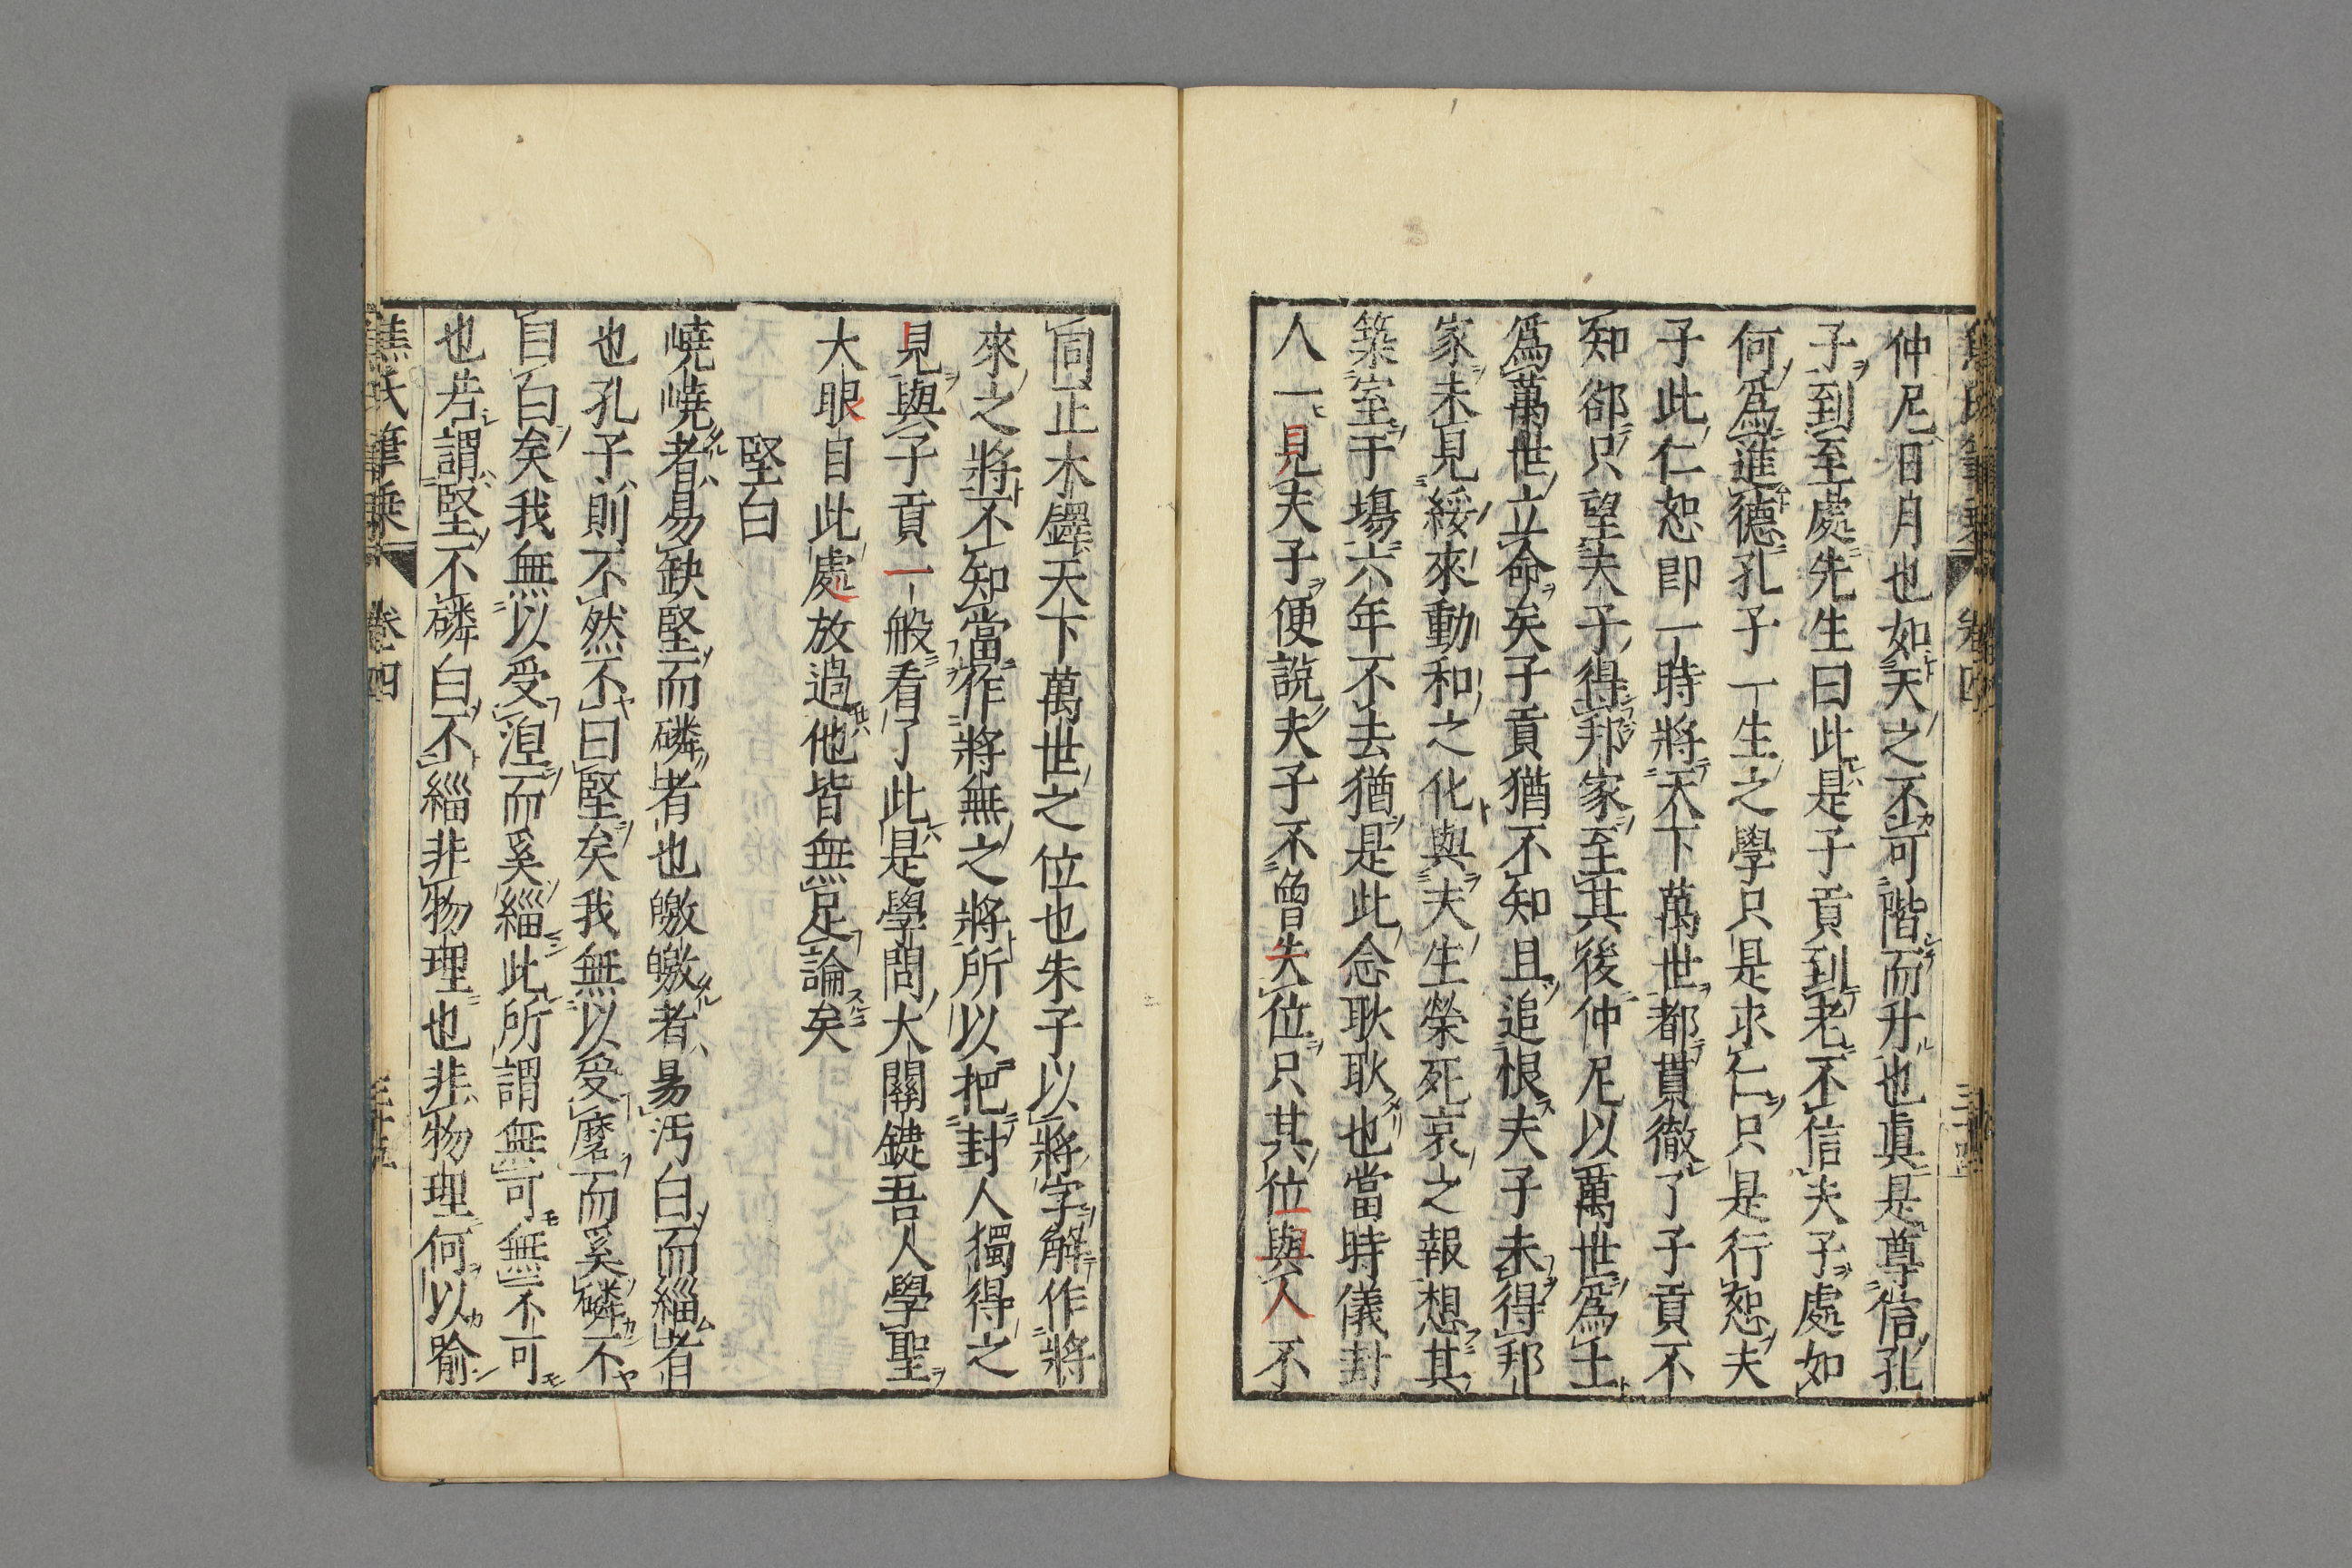 焦氏筆乘 卷四 三十四
仲尼日月也如天之不可階而升也眞是尊信孔
子到至處先生曰此是子貢到老不信夫子處如
何爲進德孔子一生之學只是求仁只是行恕夫
子此仁恕即一時將天下萬世都貫徹了子貢不
知郤只望夫子得邦家至其後仲尼以萬世爲土
爲萬世立命矣子貢猶不知且追恨夫子未得邦
家未見綏來動和之化與夫生榮死哀之報想其
築室于場六年不去猶是此念耿耿也當時儀封
人一見夫子便說夫子不曾失位只其位與人不
同正木鐸天下萬世之位也朱子以將字解作將
來之將不知當作將無之將所以把封人獨得之
見與子貢一般看了此是學問大關鍵吾人學聖
大眼目此處放過他皆無足論矣
堅白
嶢嶢者易缺堅而磷者也皦皦者易汚白而緇者
也孔子則不然不曰堅矣我無以受磨而奚磷不
自白矣我無以受湼而奚緇此所謂無可無不可
也若謂堅不磷白不緇非物理也非物理何以喻
焦氏筆乘 卷四 三十五